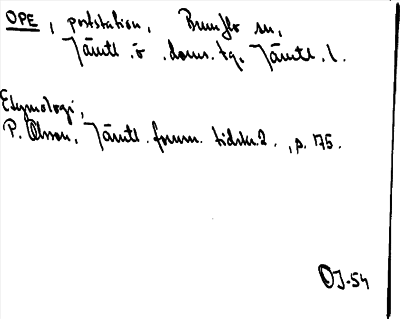 OPE, poststation, Brunflo sn,
Jämtl. ö. doms. tg. Jämtl. l.
Etymologi,
P. Olsson, Jämtl. fornm. tidskr. 2., p. 175.
OJ-54